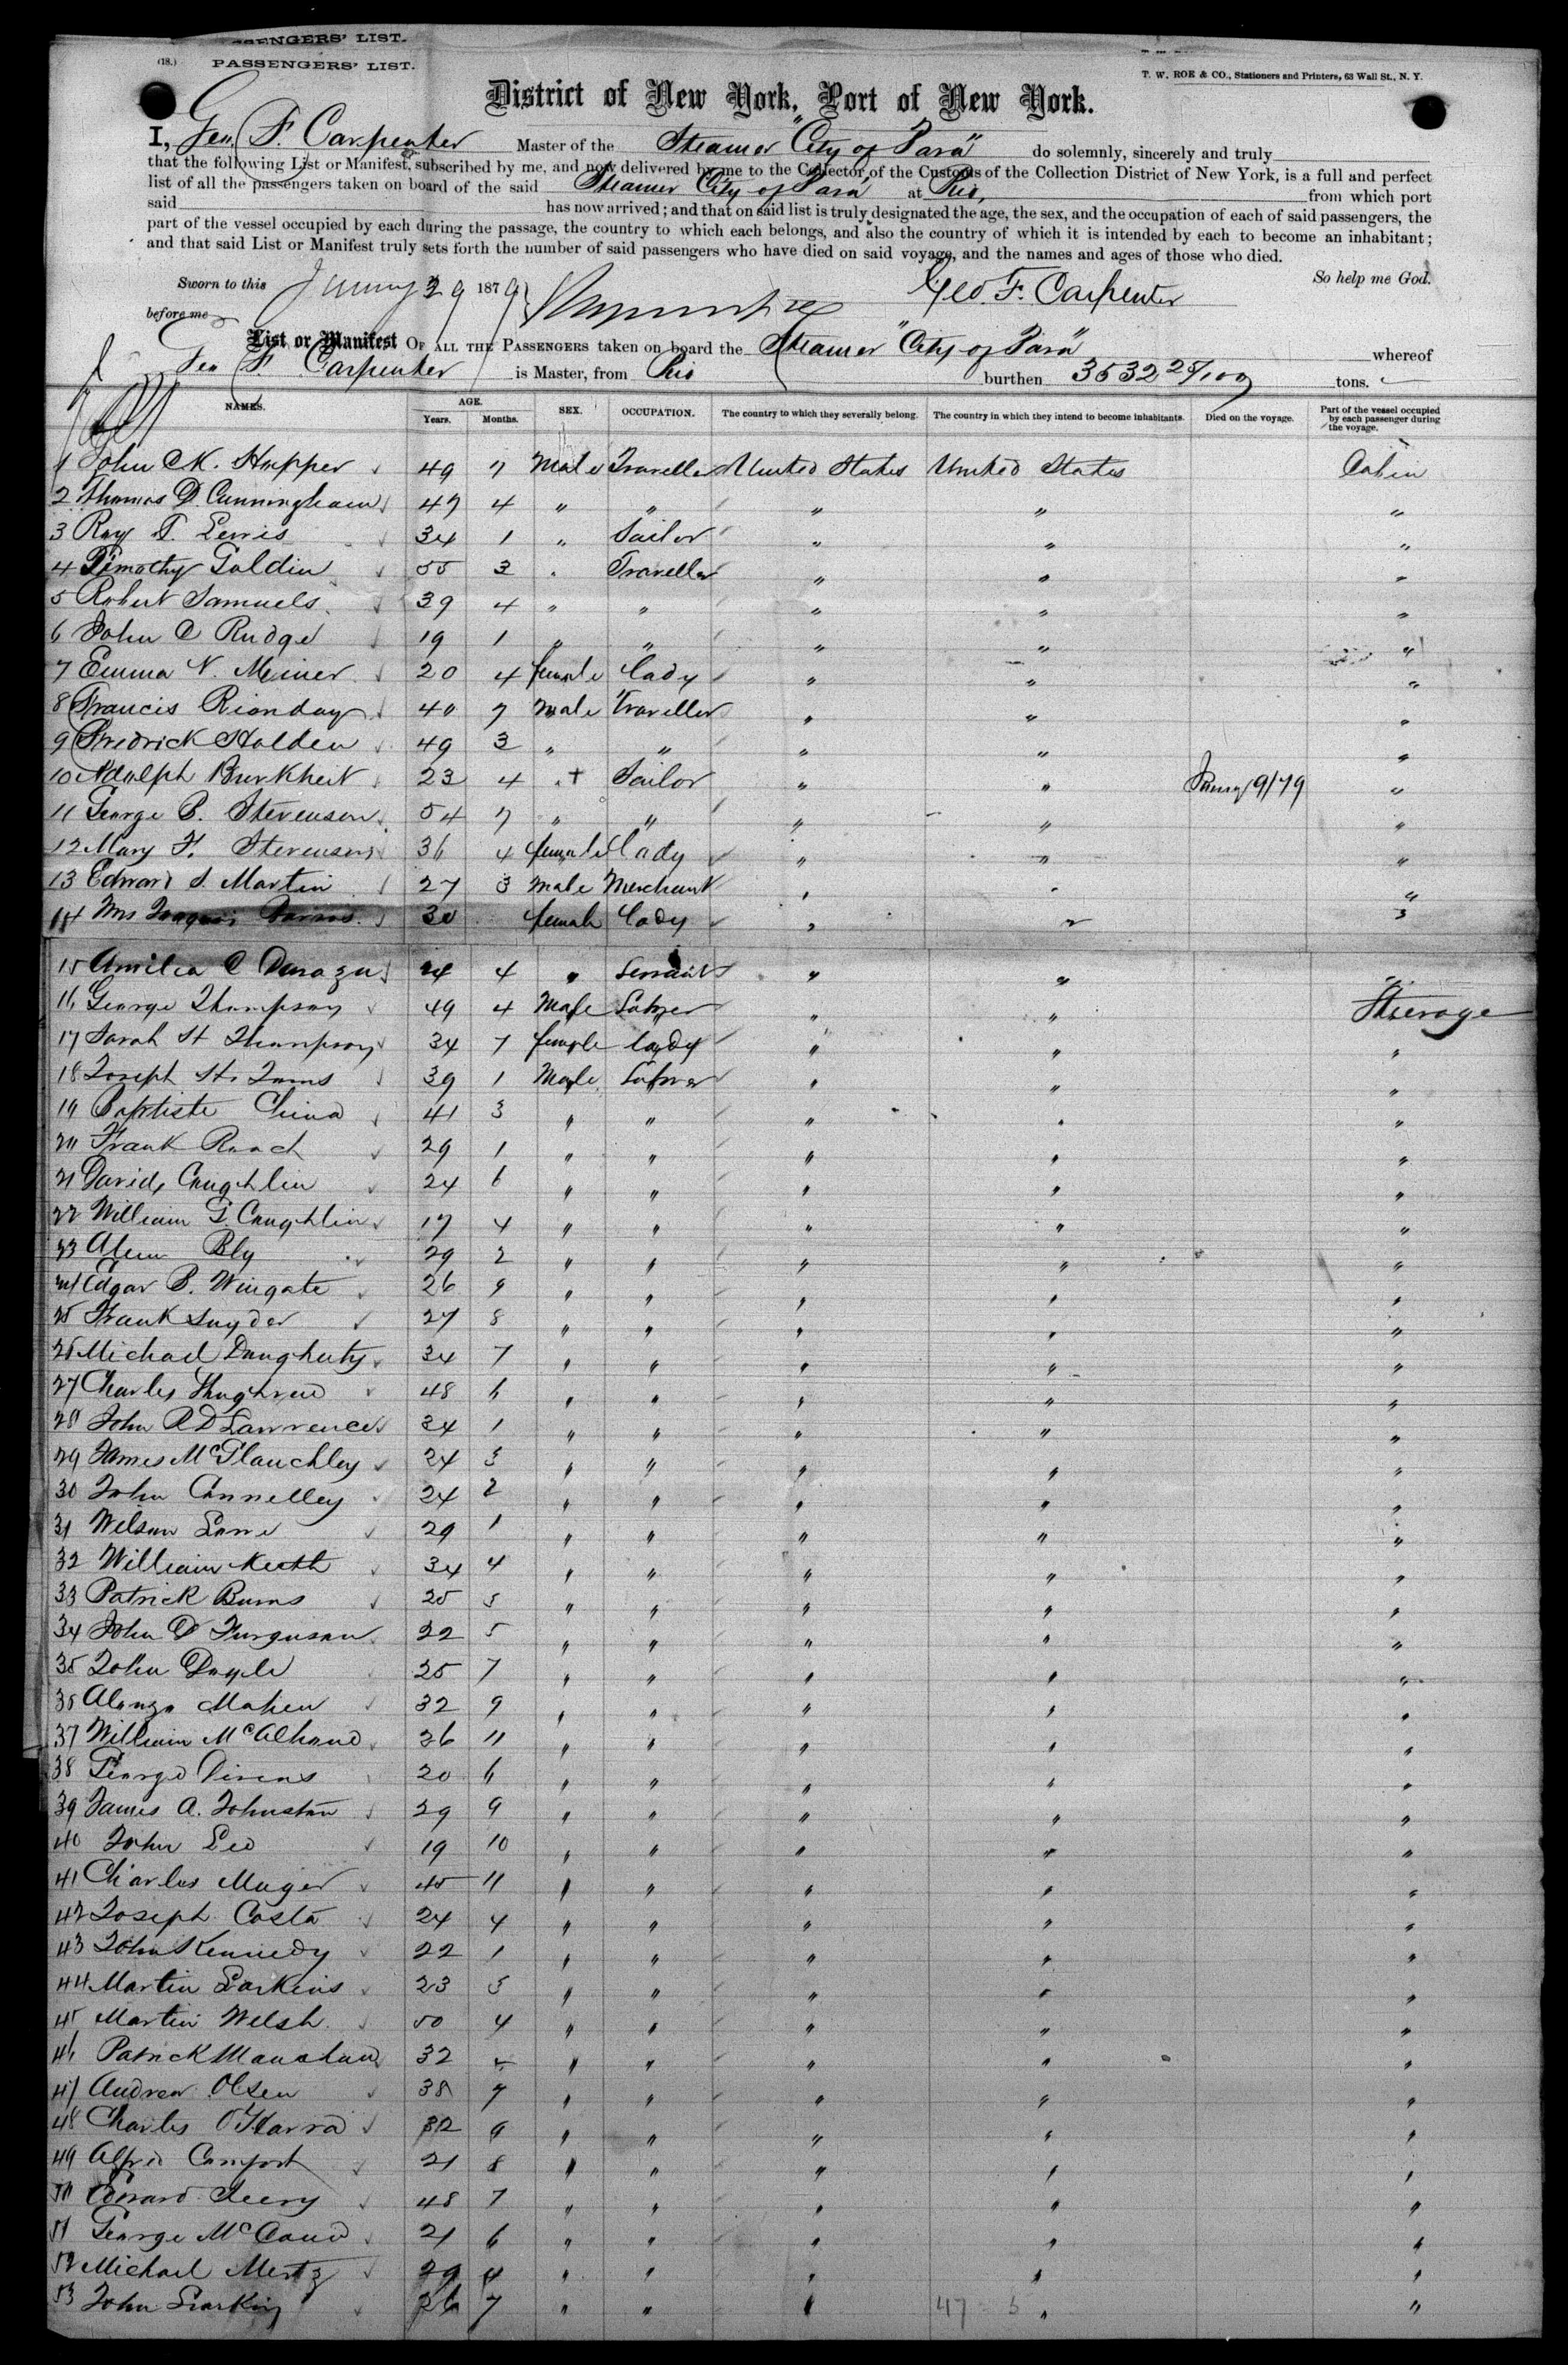 PASSENGERS' LIST.
(18.) PASSENGERS' LIST.
T. W. ROE & CO., Stationers and Printers, 63 Wall St., N. Y.
District of New York, Port of New York.
I, Geo. F. Carpenter Master of the Steamer "City of Para" do solemnly, sincerely and truly
that the following List or Manifest, subscribed by me, and now delivered by me to the Collector of the Customs of the Collection District of New York, is a full and perfect
list of all the passengers taken on board of the said Steamer City of Para at Rio, from which port
said has now arrived; and that on said list is truly designated the age, the sex, and the occupation of each of said passengers, the
part of the vessel occupied by each during the passage, the country to which each belongs, and also the country of which it is intended by each to become an inhabitant;
and that said List or Manifest truly sets forth the number of said passengers who have died on said voyage, and the names and ages of those who died.
So help me God.
Sworn to this 29 1879 Geo. F. Carpenter
before me
List or Manifest OF ALL THE PASSENGERS taken on board the Steamer "City of Para" whereof
Geo F. Carpenter is Master, from Rio burthen 3532 tons.
NAMES. AGE. Years. Months. SEX. OCCUPATION. The country to which they severally belong. The country in which they intend to become inhabitants. Died on the voyage. Part of the vessel occupied by each passenger during the voyage.
1 John K. Hopper 49 7 Male Traveller United States United States Cabin
2 Thomas D. Cunningham 47 4 " " " " "
3 Ray T. Lewis 34 1 " Sailor " " "
4 Timothy Goldin 55 3 " Traveller " " "
5 Robert Samuels 39 4 " " " " "
6 John C Rudge 19 1 " " " " "
7 Emma N. Meiner 20 4 female Lady " " "
8 Francis Rionday 40 7 Male Traveller " " "
9 Fredrick Holden 49 3 " " " " "
10 Adolph Burkheit 23 4 " + Sailor " " 9/79 "
11 George B. Stevenson 54 7 " " " " "
12 Mary F. Stevenson 36 4 female Lady " " "
13 Edward S. Martin 27 3 Male Merchant " " "
14 Mrs 30 female Lady " " "
15 Amilia C 24 4 " Servant " " "
16 George Thompson 49 4 Male Labrer " " Steerage
17 Sarah H Thompson 34 7 female lady " " "
18 Joseph H. 39 1 Male Labrer " " "
19 Baptiste China 41 3 " " " " "
20 Frank Roach 29 1 " " " " "
21 David Coughlin 24 6 " " " " "
22 William G. Coughlin 17 4 " " " " "
23 Bly 29 2 " " " " "
24 Edgar B. Wingate 26 9 " " " " "
25 Frank Snyder 27 8 " " " " "
26 Michael Daugherty 34 7 " " " " "
27 Charles 48 6 " " " " "
28 John R D Lawrence 34 1 " " " " "
29 James McGlauchley 24 3 " " " " "
30 John Connelley 24 2 " " " " "
31 Wilson Lane 29 1 " " " " "
32 William Keith 34 4 " " " " "
33 Patrick Burns 25 5 " " " " "
34 John D Furguson 22 5 " " " " "
35 John Doyle 25 7 " " " " "
36 Alonzo Maken 32 9 " " " " "
37 William 26 11 " " " " "
38 George 20 6 " " " " "
39 James A. Johnston 29 9 " " " " "
40 John Leo 19 10 " " " " "
41 Charles Mager 45 11 " " " " "
42 Joseph Costa 24 4 " " " " "
43 John Kennedy 22 1 " " " " "
44 Martin Larkins 23 5 " " " " "
45 Martin Welsh 50 4 " " " " "
46 Patrick Monahan 32 " " " " "
47 Andrew Olsen 38 7 " " " " "
48 Charles O'Harra 32 9 " " " " "
49 Alfred Comfort 21 8 " " " " "
50 Edward 48 7 " " " " "
51 George 21 6 " " " " "
52 Michael Mertz 29 4 " " " " "
53 John 26 7 " " " " "
47